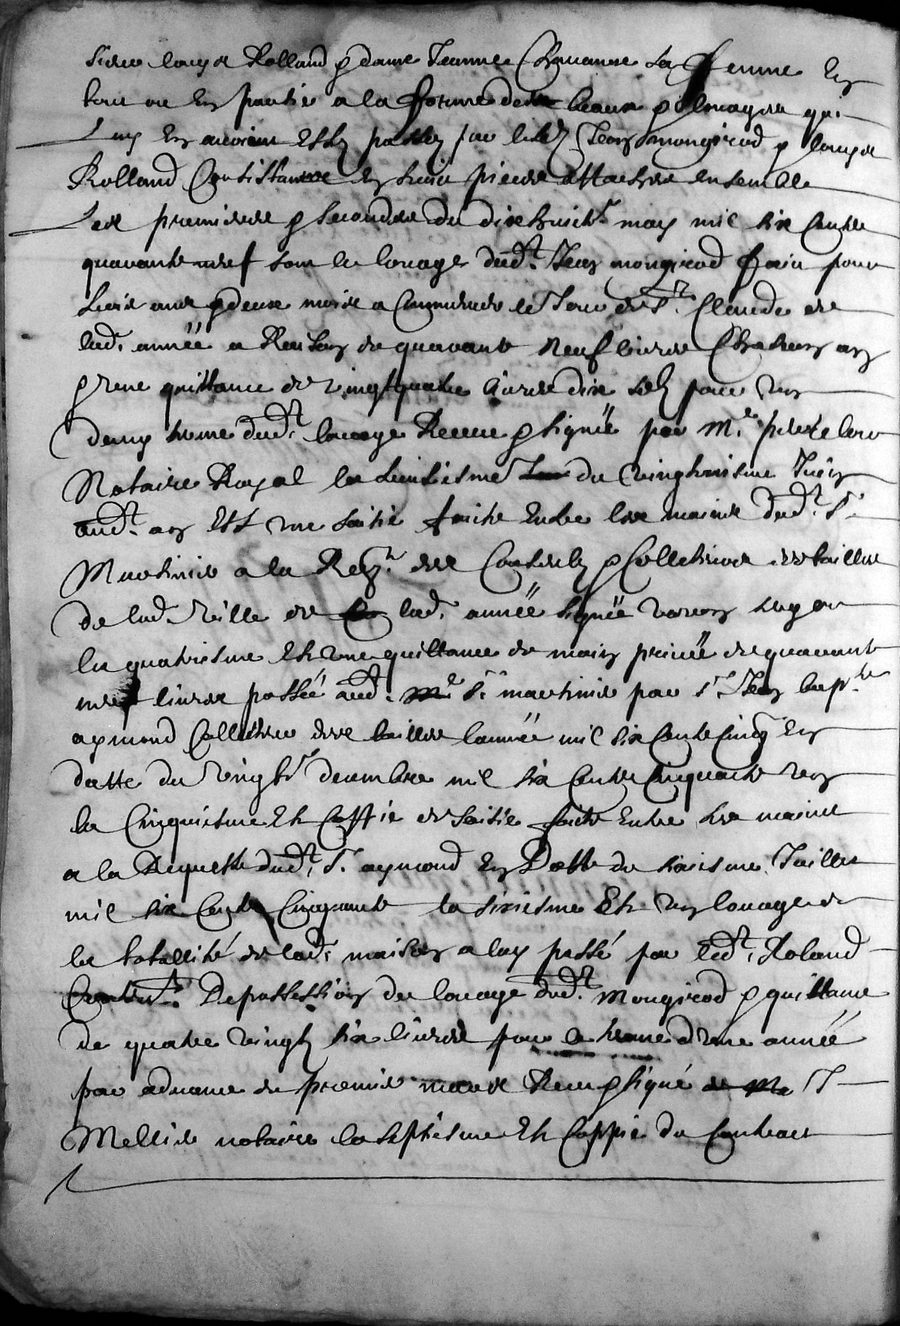 Sieur louys Rolland & dame Jeanne Chavanne sa femme En
tout ou En partie a la forme des beaux & louages qui
Luy En avoient Esté passés par lesd. Jean mongirod & louys
Rolland Consistante En huict pieces attachees ensemble
Les premieres & secondes du dixhuict.e may mil six Centz
quarante neuf sont le louage dud.t Jean mongirod faict pour
Six ans & deux mois a Commencer le Jour de S.t Claude de
lad. année a Raison de quarante neuf livres Chacun an
& une quittance de vingt quatre livres dix sols pour un
demy terme dud.t louage Receue & signée par M.e pierre
Notaire Royal la troisiesme du vingthuictiesme Juin
aud.t an Est une saisie faicte Entre les mains dud.t S.r
Martinis a la Req.te des Consulz & Collecteurs des tailles
de lad. Ville de lad. année signée
la quatriesme Est une quittance de main privée de quarante
neuf livres passée aud.t S.r martinis par S.r Jean bap.te
aymond Collecteur des tailles l'année mil six Cents Cinq.te En
datte du vingt decembre mil six Cents Cinquante un
la Cinquiesme Est Coppie de saisie faicte Entre les mains
a la Requeste dud.t S.r aymond En Datte du sixiesme Juillet
mil six Cents Cinquante la sixiesme Est un louage de
la totallité de lad. maison a luy passé par led.t Roland
Depossession du louage dud.t Mongirod & quittance
de quatre vingt six livres pour le terme d'une année
par advance du premier Receu & signé S.r
Mellier notaire la septiesme Est Coppie du Contract